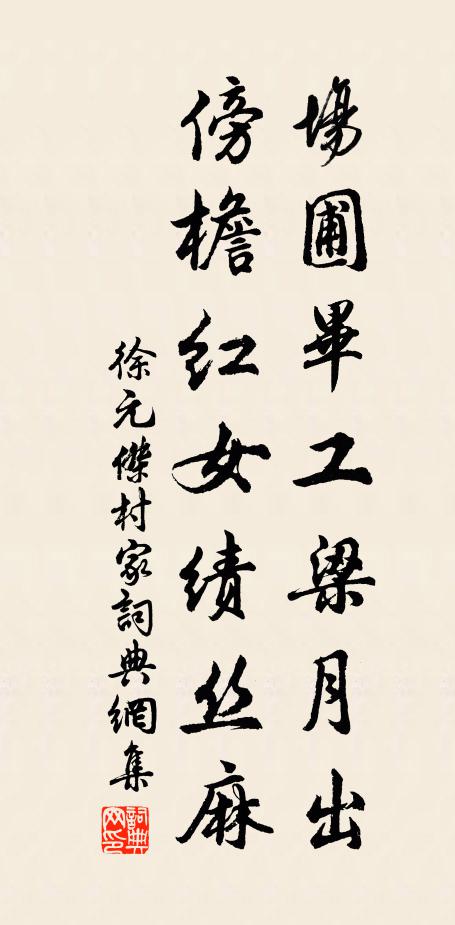 場圃畢工梁月出
傍檐红女績丝麻
徐元傑村家詞典網集
詞典网印